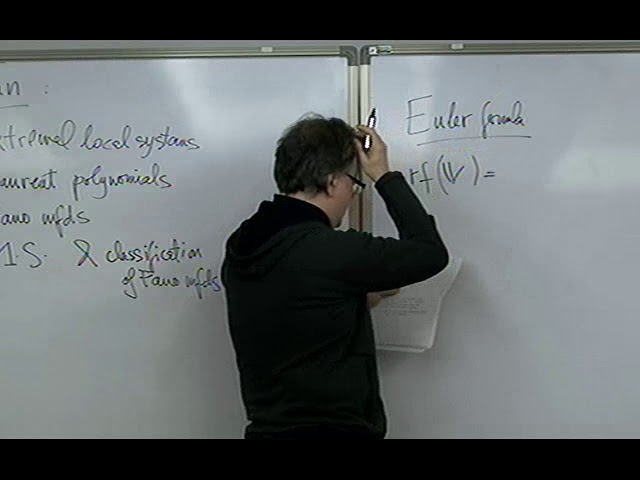 an :
xtremal local systems
aurent polynomials
ano mfds
M.S. & classification
of Fano mfds
Euler formula
rf (V) =